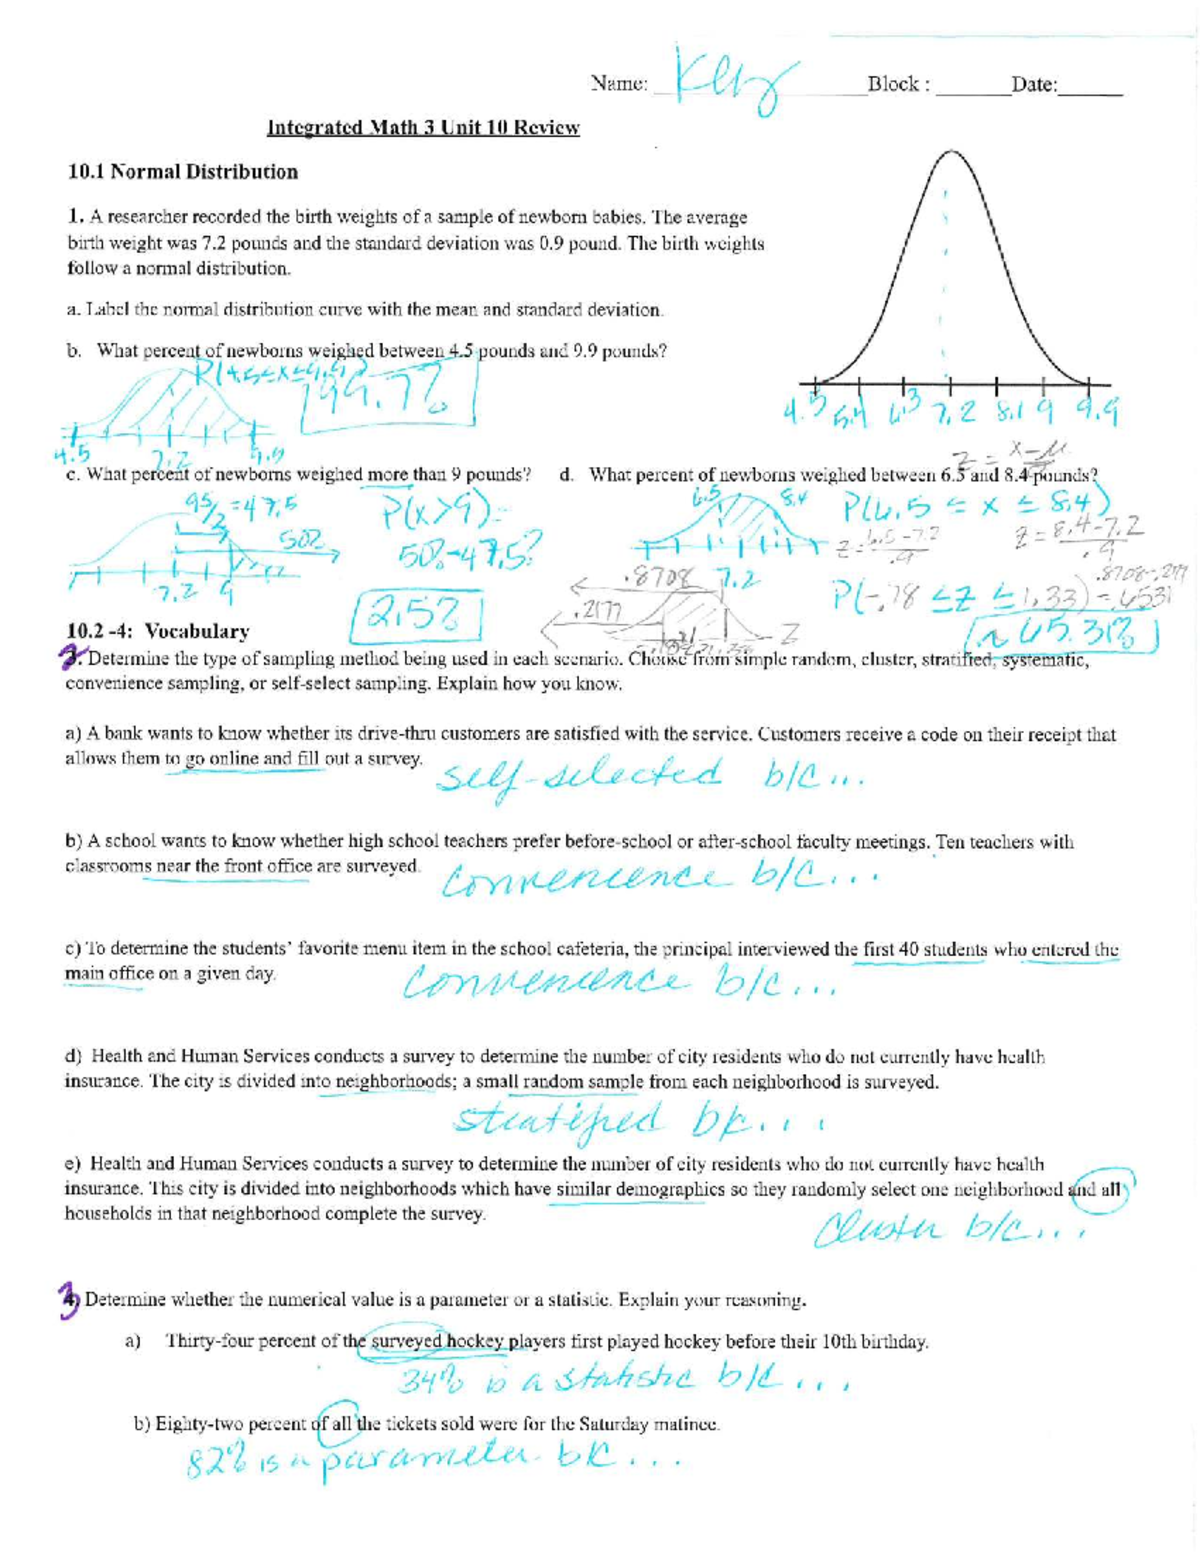 Name: Key Block : ______ Date:______
Integrated Math 3 Unit 10 Review
10.1 Normal Distribution
1. A researcher recorded the birth weights of a sample of newborn babies. The average
birth weight was 7.2 pounds and the standard deviation was 0.9 pound. The birth weights
follow a normal distribution.
a. Label the normal distribution curve with the mean and standard deviation.
b. What percent of newborns weighed between 4.5 pounds and 9.9 pounds?
P(4.5≤x≤9.9)
99.7%
4.5 5.4 6.3 7.2 8.1 9 9.9
4.5 7.2 9.9
z = x-μ
c. What percent of newborns weighed more than 9 pounds? d. What percent of newborns weighed between 6.5 and 8.4 pounds?
95/2 = 47.5 P(x>9)=
50% 50%-47.5%
7.2 9
2.5%
6.5 8.4 P(6.5 ≤ x ≤ 8.4)
z = 6.5-7.2/.9 z = 8.4-7.2/.9
.8708 7.2
.2177
z
P(-.78 ≤ z ≤ 1.33) = .6531
.8708-.2177
≈ 65.31%
10.2 -4: Vocabulary
2. Determine the type of sampling method being used in each scenario. Choose from simple random, cluster, stratified, systematic,
convenience sampling, or self-select sampling. Explain how you know.
a) A bank wants to know whether its drive-thru customers are satisfied with the service. Customers receive a code on their receipt that
allows them to go online and fill out a survey.
self-selected b/c...
b) A school wants to know whether high school teachers prefer before-school or after-school faculty meetings. Ten teachers with
classrooms near the front office are surveyed.
convenience b/c...
c) To determine the students' favorite menu item in the school cafeteria, the principal interviewed the first 40 students who entered the
main office on a given day.
convenience b/c...
d) Health and Human Services conducts a survey to determine the number of city residents who do not currently have health
insurance. The city is divided into neighborhoods; a small random sample from each neighborhood is surveyed.
stratified b/c...
e) Health and Human Services conducts a survey to determine the number of city residents who do not currently have health
insurance. This city is divided into neighborhoods which have similar demographics so they randomly select one neighborhood and all
households in that neighborhood complete the survey.
cluster b/c...
3 Determine whether the numerical value is a parameter or a statistic. Explain your reasoning.
a) Thirty-four percent of the surveyed hockey players first played hockey before their 10th birthday.
34% is a statistic b/c...
b) Eighty-two percent of all the tickets sold were for the Saturday matinee.
82% is a parameter bc...